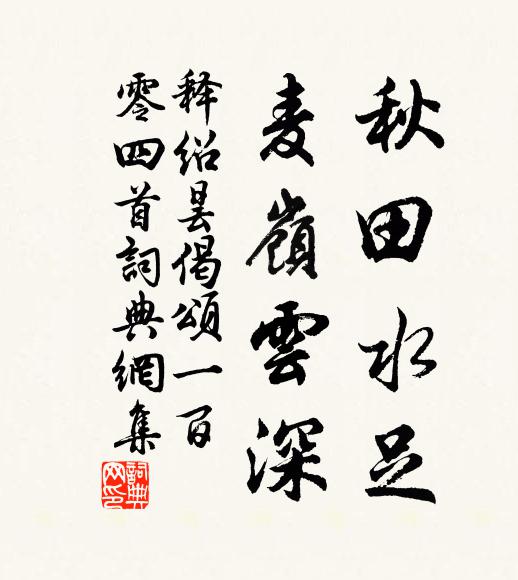 秋田水足
麦嶺雲深
释绍昙偈頌一百
零四首詞典網集
詞典网印